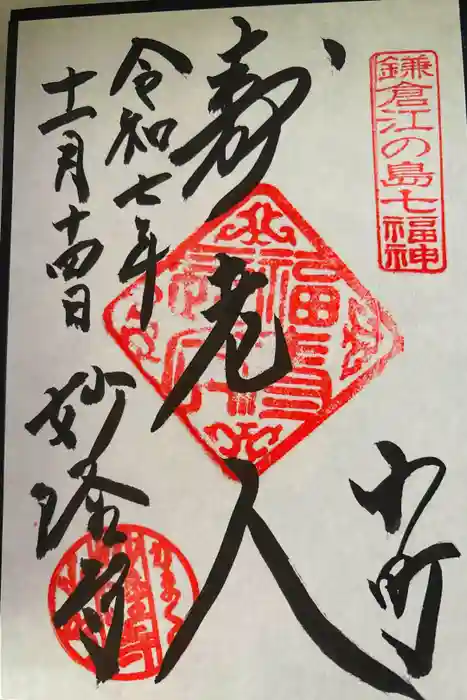 鎌倉江の島七福神
小町
寿老人
令和七年
十一月十四日
妙隆寺